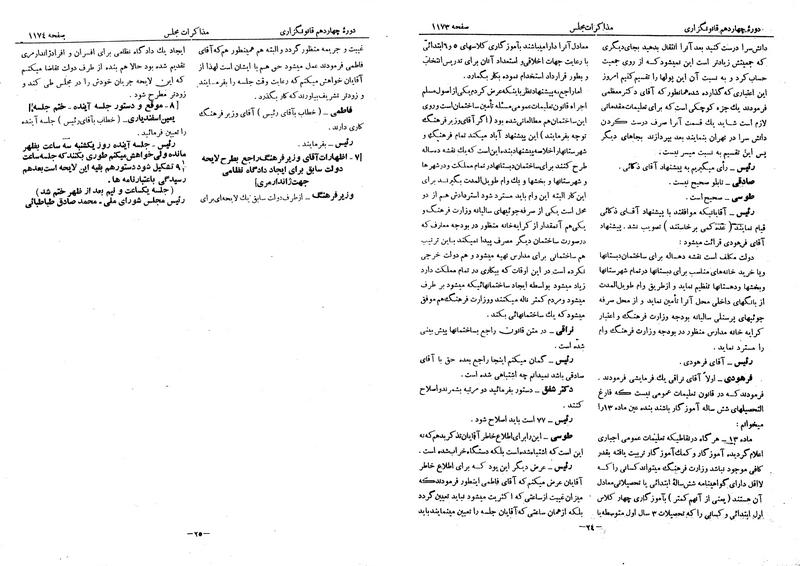 دورهٔ چهاردهم قانونگزاری
مذاکرات مجلس
صفحه ۱۱۷۳
دانش‌سرا درست کنید بعد آنرا انتقال بدهید بجای دیگری
که جمعیتش زیادتر است این نمیشود که از روی جمعیت
حساب کرد و به نسبت آن این پولها را تقسیم کنیم امروز
این اعتباری که گذارده شده همانطور که آقای دکتر معظمی
فرمودند یك جزء کوچکی است که برای تعلیمات مقدماتی
لازم است شاید یك قسمت آنرا صرف درست کردن
دانش سرا در تهران بنمایند بعد بپردازند بجاهای دیگر
پس این تقسیم به نسبت میسر نیست.
رئیس ـ رأی میگیریم به پیشنهاد آقای ذکائی.
صادقی ـ تابلو صحیح نیست.
طوسی ـ صحیح است.
رئیس ـ آقایانیکه موافقند با پیشنهاد آقای ذکائی
قیام نمایند (عده کمی برخاستند) تصویب نشد. پیشنهاد
آقای فرهودی قرائت میشود:
دولت مکلف است نقشه دهساله برای ساختمان دبستانها
و یا خرید خانه‌های مناسب برای دبستانها در تمام شهرستانها
و بخشها و دهستانها تنظیم نماید و از طریق وام طویل‌المدت
از بانگهای داخلی محل آنرا تأمین نماید و از محل صرفه
جوئیهای پرسنلی سالیانه بودجه وزارت فرهنگ و اعتبار
کرایه خانه مدارس منظور در بودجه وزارت فرهنگ وام
را مسترد نماید.
رئیس ـ آقای فرهودی.
فرهودی ـ اولاً آقای نراقی یك فرمایشی فرمودند.
فرمودند که در قانون تعلیمات عمومی نیست که فارغ
التحصیلهای شش ساله آموزگار باشند بنده عین ماده ۱۳ را
میخوانم:
ماده ۱۳ ـ هرگاه در نقاطیکه تعلیمات عمومی اجباری
اعلام گردیده آموزگار و کمك آموزگار تربیت یافته بقدر
کافی موجود نباشد وزارت فرهنگ میتواند کسانی را که
لااقل دارای گواهینامه شش سالهٔ ابتدائی یا تحصیلاتی معادل
آن هستند (یعنی از آنهم کمتر) بآموزگاری چهار کلاس
اول ابتدائی و کسانی را که تحصیلات ۳ سال اول متوسطه یا
معادل آنرا دارا میباشند بآموزگاری کلاسهای ۵ و ۶ ابتدائی
با رعایت جهات اخلاقی و استعداد آنان برای تدریس انتخاب
و بطور قرارداد استخدام نموده بکار بگمارد.
اما راجع به پیشنهاد نظر باینکه عرض کردم یکی از اصول مسلم
اجراء قانون تعلیمات عمومی مسئله تأمین ساختمان است و روی
این ساختمان هم مطالعاتی شده بود (اگر آقای وزیر فرهنگ
توجه بفرمایند) این پیشنهاد آباد میکند تمام فرهنگ و
شهرستانها را خلاصه بنده با این است که یك نقشه دهساله
طرح کنند برای ساختمان دبستانها در تمام مملکت و در شهرها
و شهرستانها و بخشها و یك وام طویل‌المدت بگیرند برای
این کار البته این وام باید مسترد شود استردادش هم از دو
محل است یکی از صرفه‌جوئیهای سالیانه وزارت فرهنگ و
یکی هم آنمقدار از کرایه خانه منظور در بودجه معارف که
درصورت ساختمان دیگر مصرف پیدا نمیکند با این ترتیب
هم ساختمانی برای مدارس تهیه میشود و هم دولت خرجی
نکرده است در این اوقات که بیکاری در تمام مملکت دارد
زیاد میشود بواسطه ایجاد ساختمانهائیکه میشود بر طرف
میشود و مردم کمتر ناله میکنند و وزارت فرهنگ هم موفق
میشود که یك ساختمانهائی بکند.
نراقی ـ در متن قانون راجع بساختمانها پیش بینی
شده است.
رئیس ـ گمان میکنم اینجا راجع بعده حق با آقای
صادقی باشد نمیدانم چه اشتباهی شده است.
دکتر شفق ـ دستور بفرمائید دو مرتبه بشمرند و اصلاح
کنند.
رئیس ـ ۷۷ است باید اصلاح شود.
طوسی ـ این را برای اطلاع خاطر آقایان تذکر بدهم که نه
این است که اشتباه شده است بلکه دستگاه خراب شده است.
رئیس ـ عرض دیگر این بود که برای اطلاع خاطر
آقایان عرض میکنم که آقای فاطمی اینطور فرمودند که
میزان غیبت از ساعتی که اکثریت میشود نباید تعیین گردد
بلکه از همان ساعتی که آقایان جلسه را تعیین مینمایند باید
ـ ۲۴ ـ
دورهٔ چهاردهم قانونگزاری
مذاکرات مجلس
صفحه ۱۱۷۴
غیبت و جریمه منظور گردد و البته هم همینطور هم که آقای
فاطمی فرمودند عمل میشود حتی هم با ایشان است لهذا از
آقایان خواهش میکنم که رعایت وقت جلسه را بفرمایند
و زودتر تشریف بیاورند که کار بگذرد.
فاطمی ـ (خطاب بآقای رئیس) آقای وزیر فرهنگ
کاری دارند.
رئیس ـ بفرمایند.
[۷ ـ اظهارات آقای وزیر فرهنگ راجع بطرح لایحه
دولت سابق برای ایجاد دادگاه نظامی
جهت ژاندارمری]
وزیر فرهنگ ـ از طرف دولت سابق یك لایحه‌ای برای
ایجاد یك دادگاه نظامی برای افسران و افراد ژاندارمری
تقدیم شده بود حالا هم بنده از طرف دولت تقاضا میکنم
که این لایحه جریان خودش را در مجلس طی کند و
زودتر مطرح شود.
[۸ ـ موقع و دستور جلسه آینده ـ ختم جلسه]
یمین اسفندیاری ـ (خطاب بآقای رئیس) جلسه آینده
را تعیین فرمائید.
رئیس ـ جلسه آینده روز یکشنبه سه ساعت بظهر
مانده ولی خواهش میکنم طوری بکنند که جلسه ساعت
۹ تشکیل شود دستور هم بقیه این لایحه است بعد هم
رسیدگی باعتبارنامه ها.
(جلسه یکساعت و نیم بعد از ظهر ختم شد)
رئیس مجلس شورای ملی ـ محمد صادق طباطبائی
ـ ۲۵ ـ